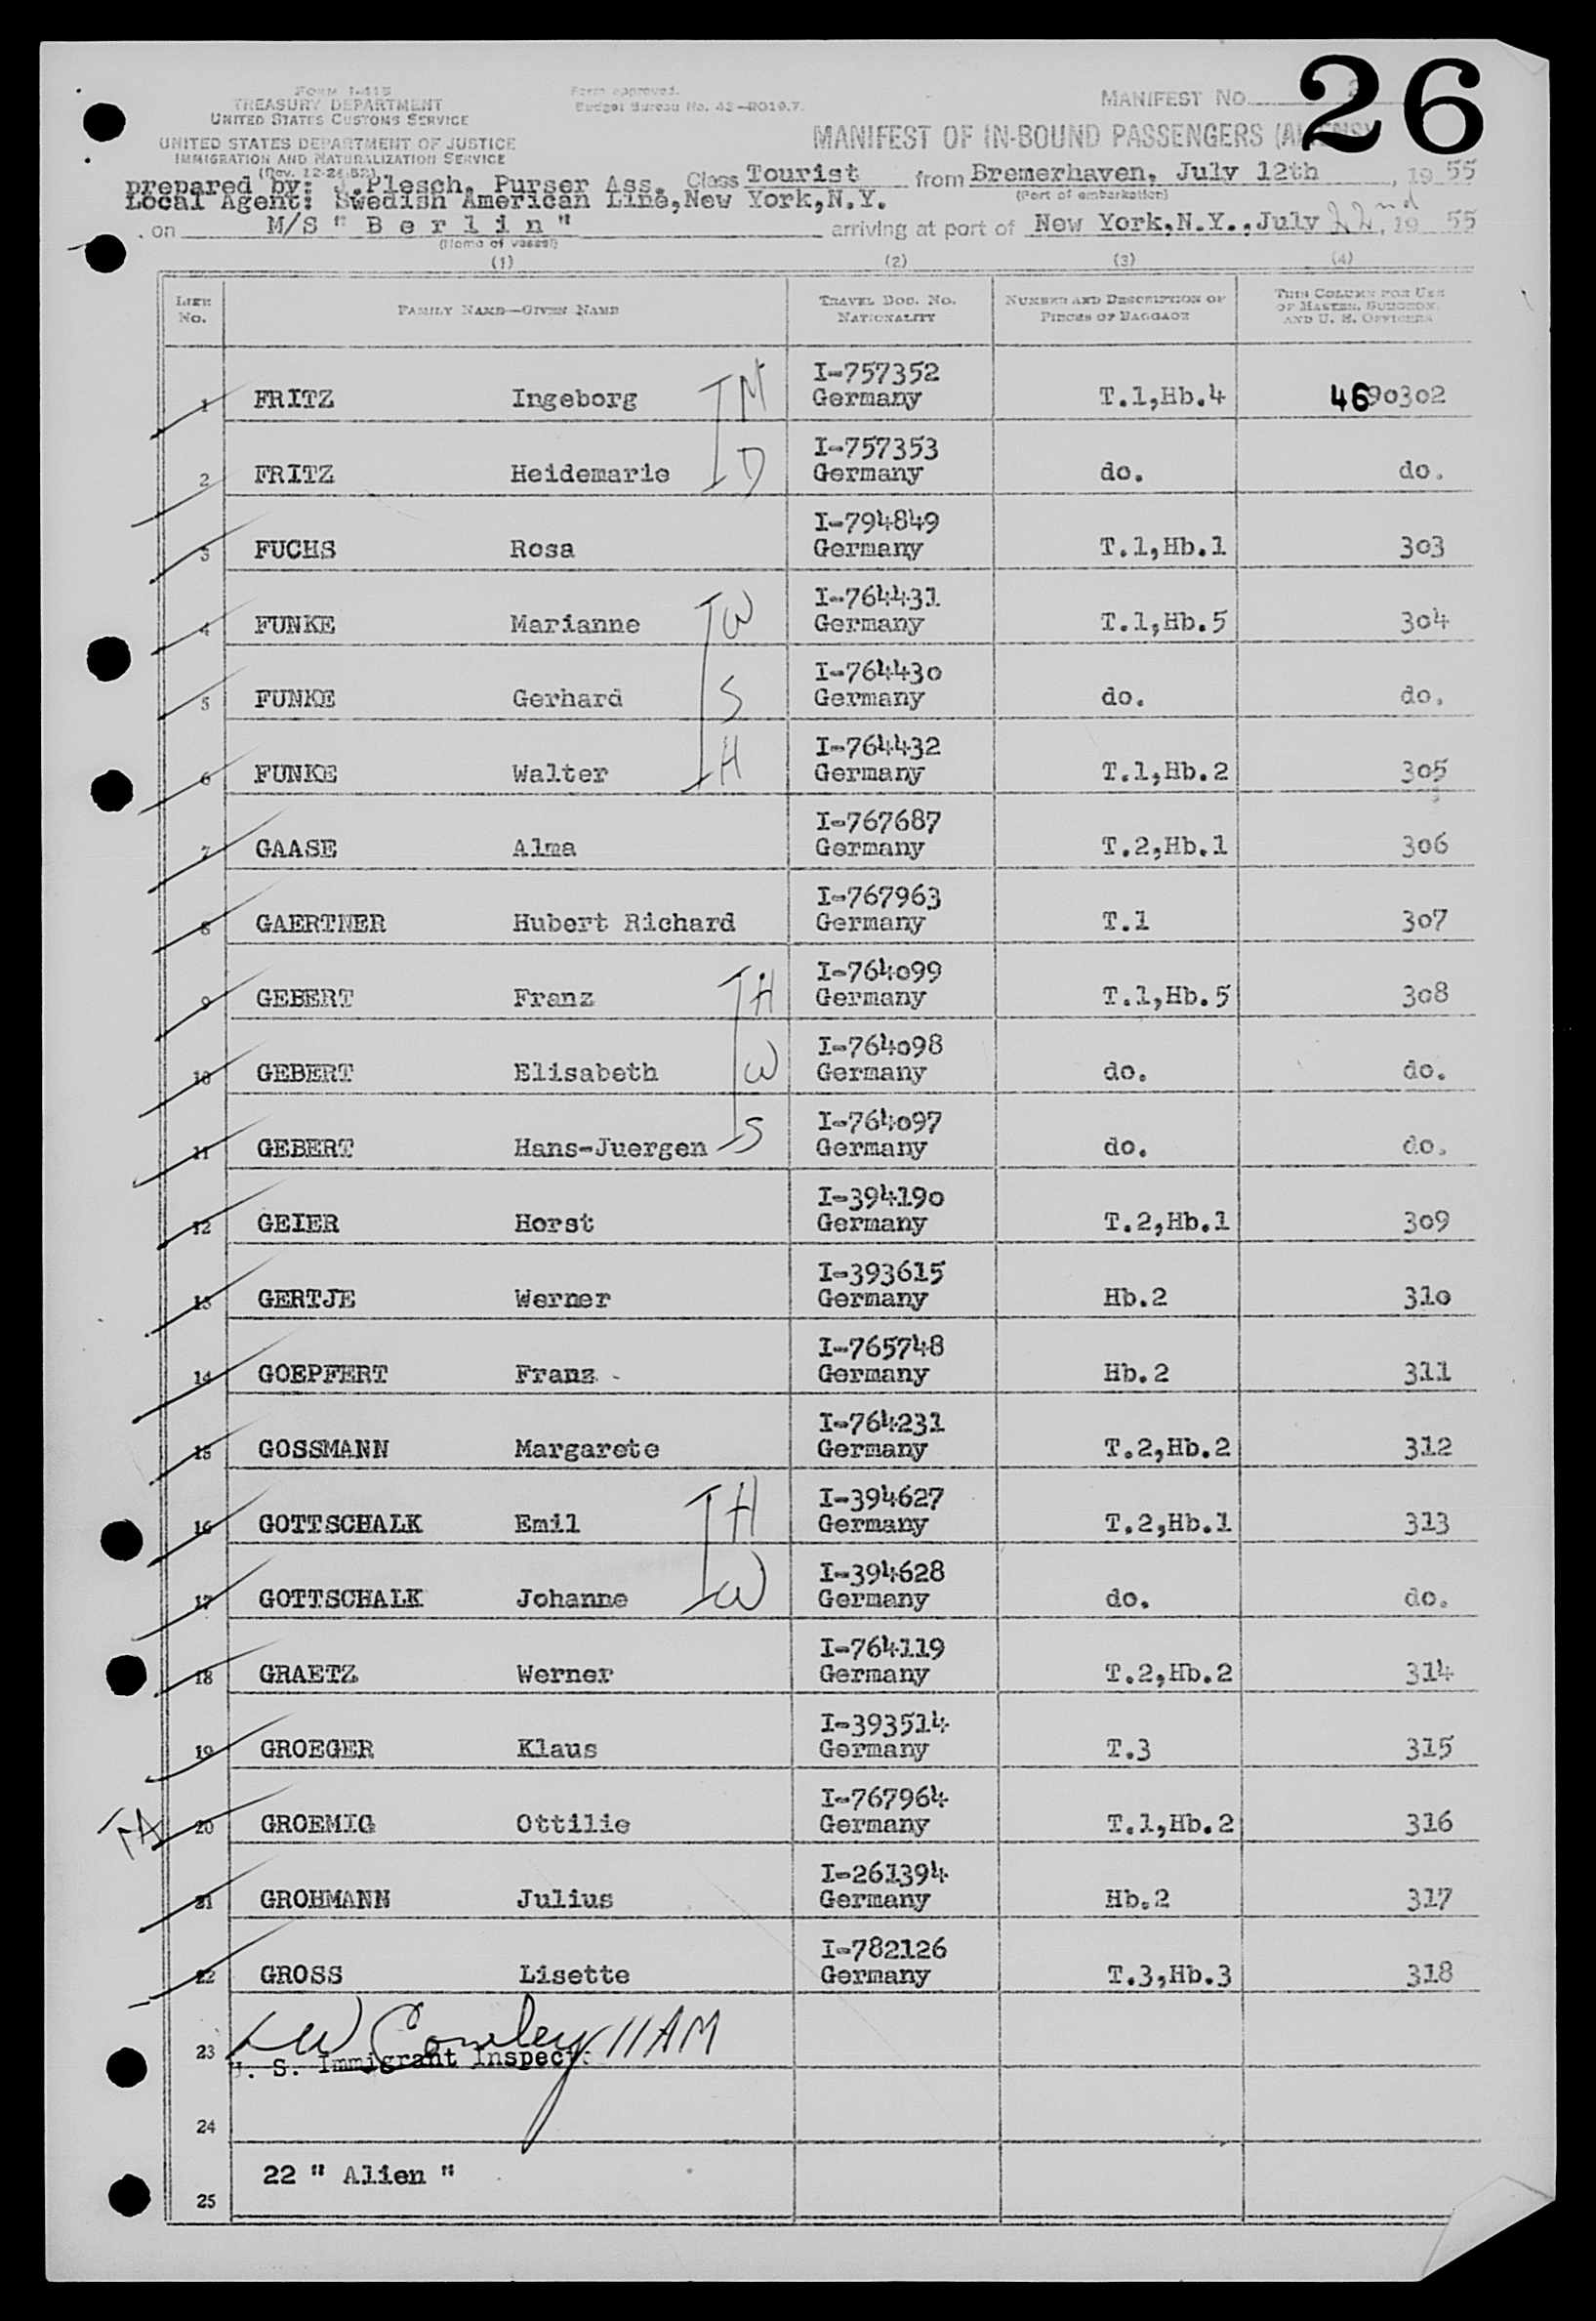 26
FORM I-415
TREASURY DEPARTMENT
UNITED STATES CUSTOMS SERVICE
UNITED STATES DEPARTMENT OF JUSTICE
IMMIGRATION AND NATURALIZATION SERVICE
(Rev. 12-24-52)
Form approved.
Budget Bureau No. 43-R019.7.
MANIFEST NO.
MANIFEST OF IN-BOUND PASSENGERS (ALIENS)
prepared by: J.Plesch, Purser Ass. Class Tourist from Bremerhaven, July 12th, 1955
(Port of embarkation)
Local Agent: Swedish American Line,New York,N.Y.
on M/S " B e r l i n " arriving at port of New York,N.Y.,July 22nd, 1955
(Name of vessel)
(1) (2) (3) (4)
LINE No. FAMILY NAME—GIVEN NAME TRAVEL DOC. NO. NATIONALITY NUMBER AND DESCRIPTION OF PIECES OF BAGGAGE THIS COLUMN FOR USE OF MASTER, SURGEON, AND U. S. OFFICERS
I-757352
1 FRITZ Ingeborg M Germany T.1,Hb.4 4690302
I-757353
2 FRITZ Heidemarie D Germany do. do.
I-794849
3 FUCHS Rosa Germany T.1,Hb.1 303
I-764431
4 FUNKE Marianne W Germany T.1,Hb.5 304
I-764430
5 FUNKE Gerhard S Germany do. do.
I-764432
6 FUNKE Walter H Germany T.1,Hb.2 305
I-767687
7 GAASE Alma Germany T.2,Hb.1 306
I-767963
8 GAERTNER Hubert Richard Germany T.1 307
I-764099
9 GEBERT Franz H Germany T.1,Hb.5 308
I-764098
10 GEBERT Elisabeth W Germany do. do.
I-764097
11 GEBERT Hans-Juergen S Germany do. do.
I-394190
12 GEIER Horst Germany T.2,Hb.1 309
I-393615
13 GERTJE Werner Germany Hb.2 310
I-765748
14 GOEPFERT Franz Germany Hb.2 311
I-764231
15 GOSSMANN Margarete Germany T.2,Hb.2 312
I-394627
16 GOTTSCHALK Emil H Germany T.2,Hb.1 313
I-394628
17 GOTTSCHALK Johanne W Germany do. do.
I-764119
18 GRAETZ Werner Germany T.2,Hb.2 314
I-393514
19 GROEGER Klaus Germany T.3 315
I-767964
FA 20 GROEMIG Ottilie Germany T.1,Hb.2 316
I-261394
21 GROHMANN Julius Germany Hb.2 317
I-782126
22 GROSS Lisette Germany T.3,Hb.3 318
23 W Conley 11AM
U. S. Immigrant Inspect
24
22 " Alien "
25